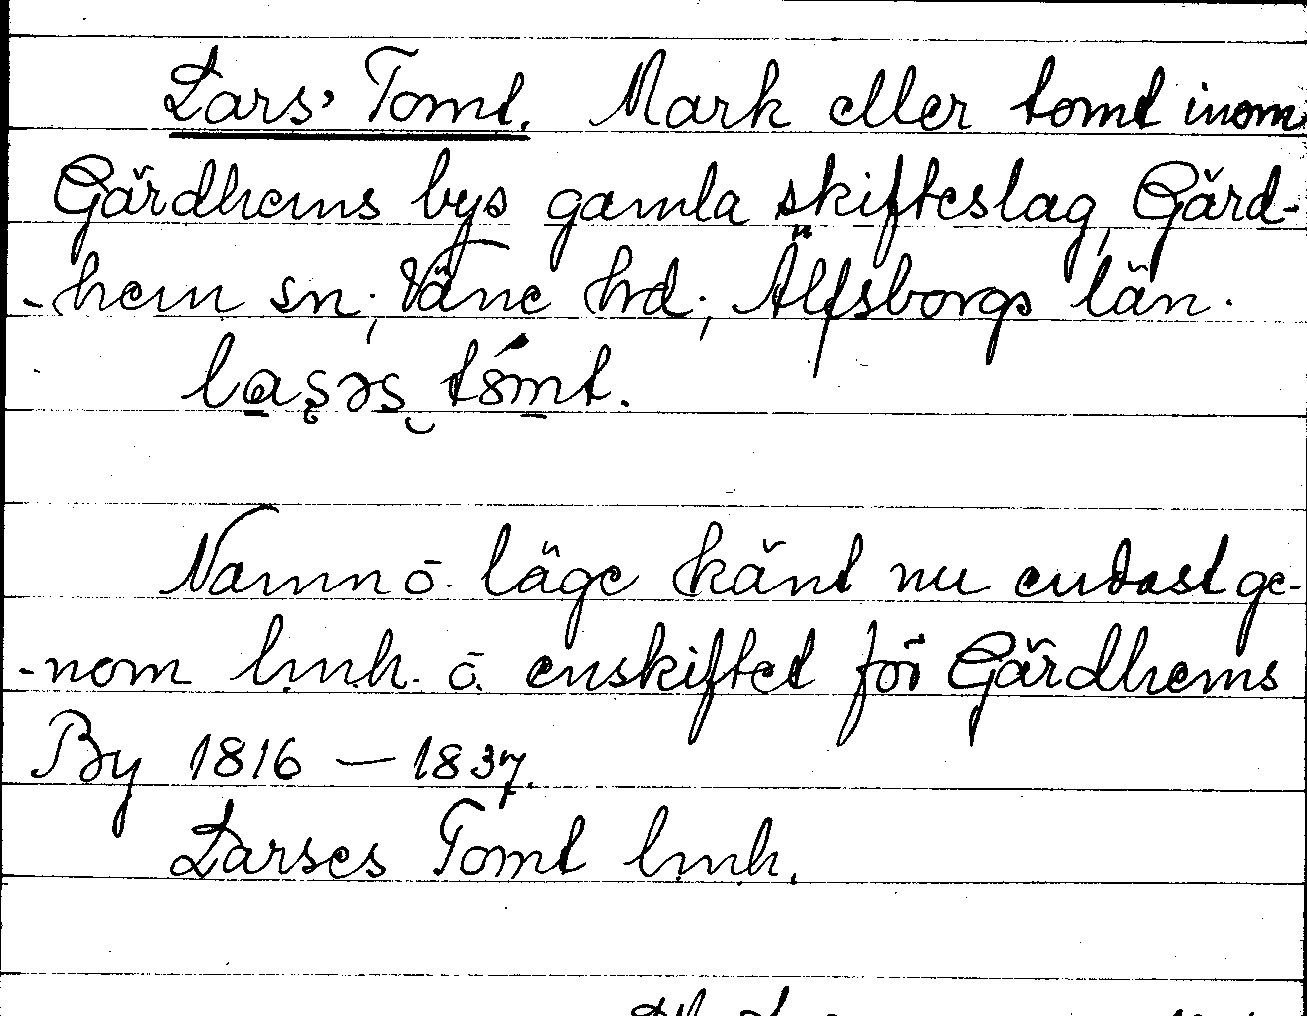 Lars' Tomt. Mark eller tomt inom
Gärdhems bys gamla skifteslag, Gärd-
-hem sn; Väne hd; Älfsborgs län.
lasəs tomt.
Namn o läge känt nu endast ge-
-nom lmh. o. enskiftet för Gärdhems
By 1816 — 1837.
Larses Tomt lmh.